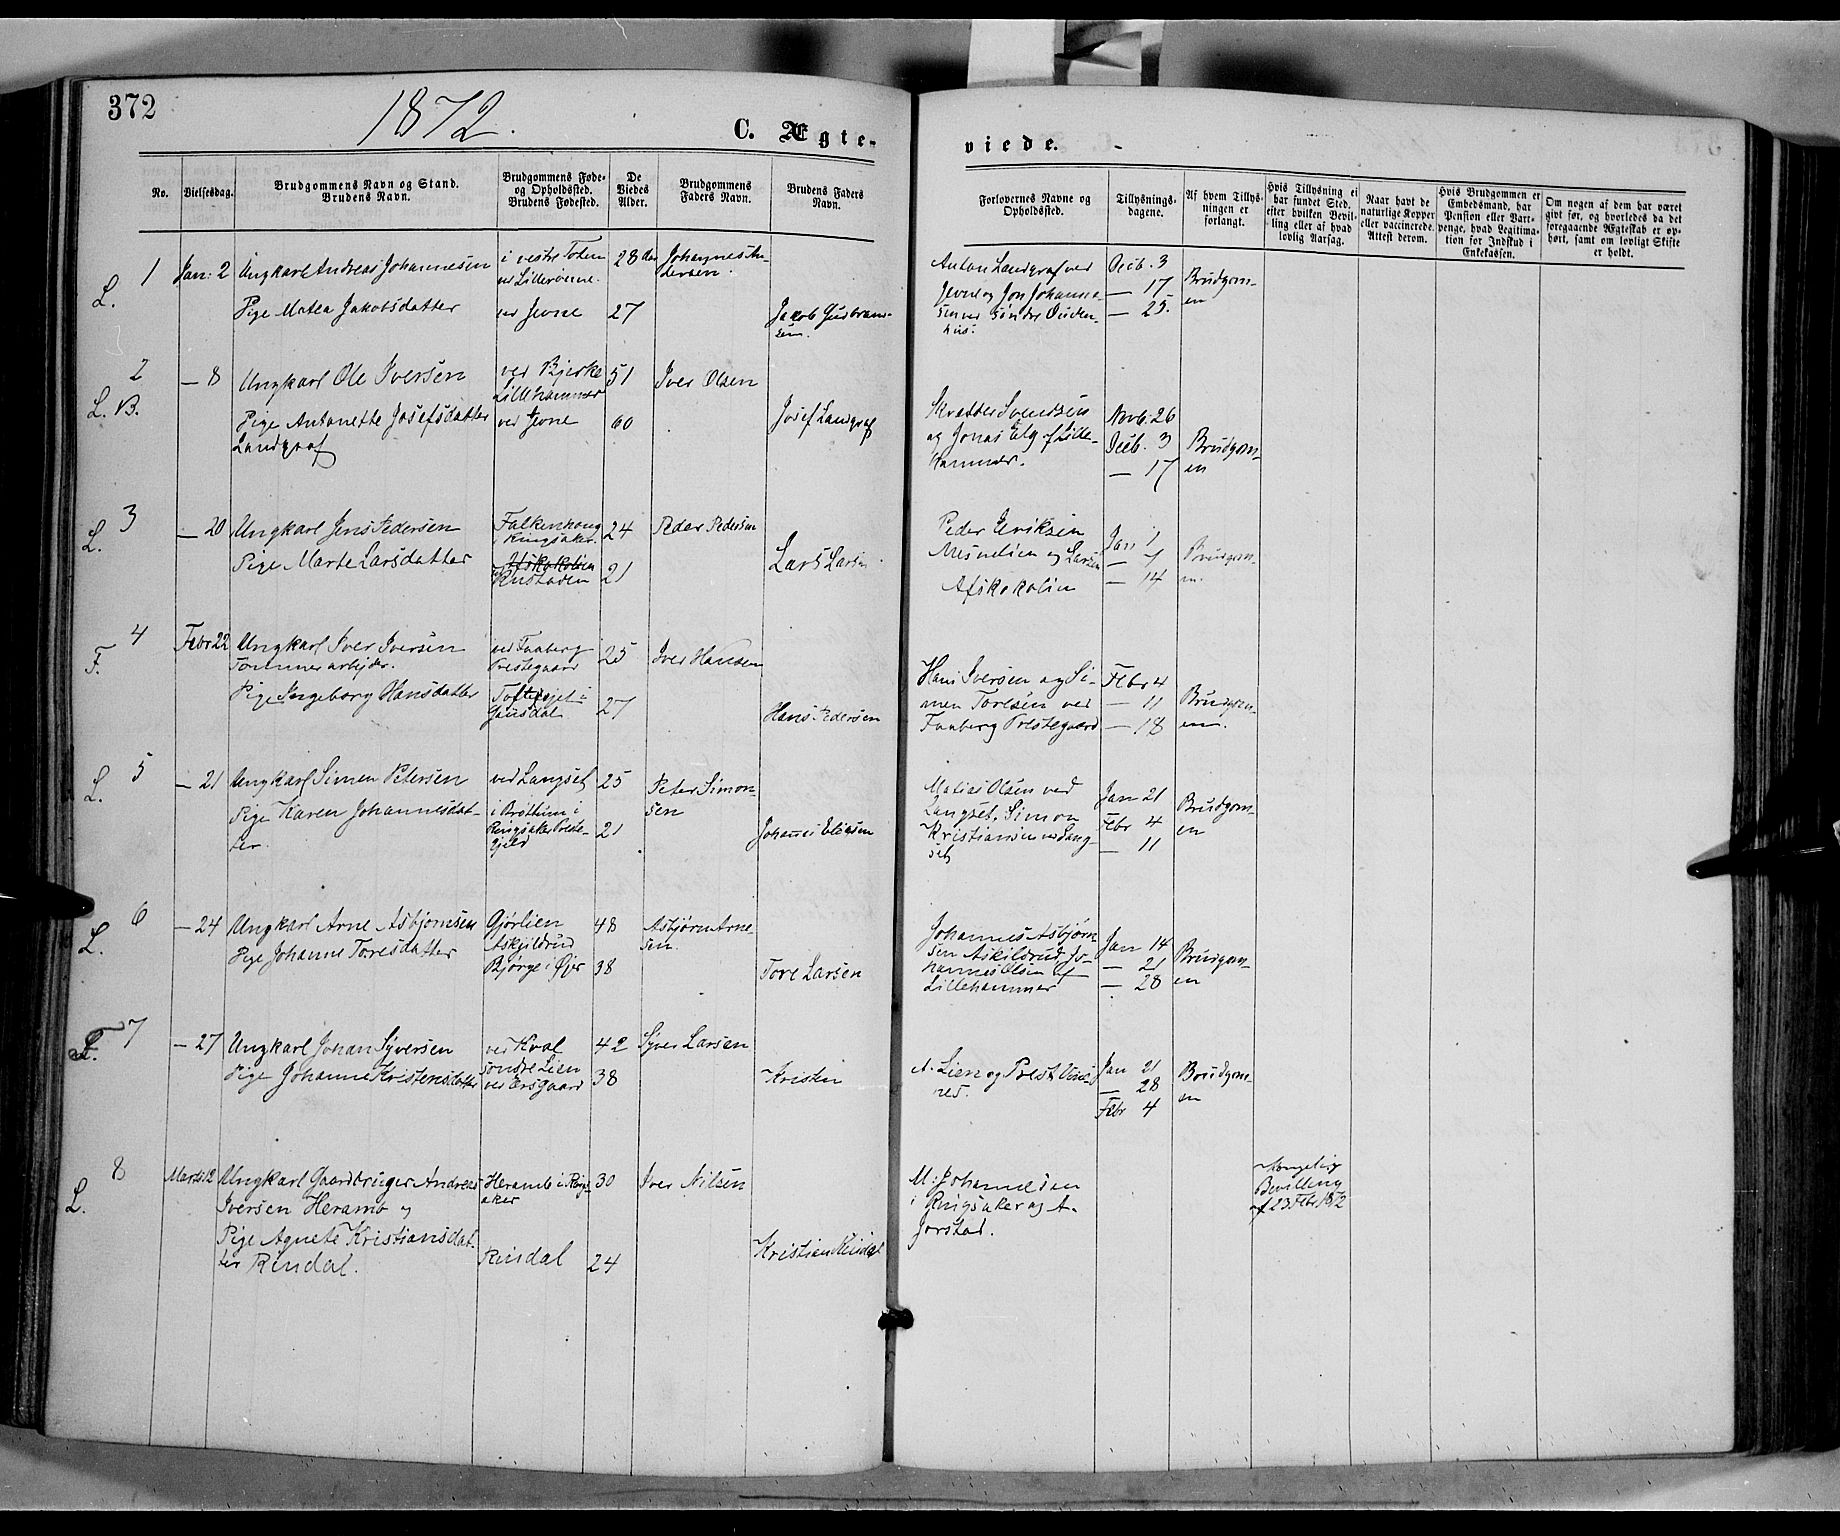 372
1872.
C. Ægte-
viede.
No.
Vielsesdag.
Brudgommens Navn og Stand.
Brudens Navn.
Brudgommens Føde-
og Opholdssted.
Brudens Fødested.
De
Viedes
Alder.
Brudgommens
Faders Navn.
Brudens Faders
Navn.
Forlovernes Navne og
Opholdssted.
Tillysnings-
dagene.
Af hvem Tillys-
ningen er
forlangt.
Hvis Tillysning ei
har fundet Sted,
efter hvilken Bevil-
ling eller af hvad
lovlig Aarsag.
Naar havt de
naturlige Kopper
eller vaccinerede.
Attest derom.
Hvis Brudgommen er
Embedsmand, har
Pension eller Vart-
penge, hvad Legitima-
tion for Indskud i
Enkekassen.
Om nogen af dem har været
givt før, og hvorledes da det
foregaaende Ægteskab er op-
hørt, samt om lovligt Skifte
er holdt.
1
L.
Jan: 2
Ungkarl Andreas Johannesen
Pige Matea Jakobsdatter
i vestre Toten
ved Jevne
28
27
Johannes An-
dersen.
Jakob Gudbrand-
sen.
Anton Landgraf ved
Jevne og Jon Johanne-
Decb. 3
— 17
— 25.
Brudgom-
en
2
L. B.
— 8
Ungkarl Ole Iversen
Pige Antonette Josefsdatter
Landgraf
ved Bjerke
Lillehammer
ved Jevne
51
60
Iver Olsen
Josef Landgraf
Skrædder Svendsen
og Jonas Elg af Lille-
hammer.
Novb. 26
Decb. 3
— 17
Brudgom-
en
3
L.
— 20
Ungkarl Jens Pedersen
Pige Marte Larsdatter
Falkenhaug
i Ringsaker.
Rustaden
24
21
Peder Pedersen
Lars Larsen
Peder Eriksen
Mesnelien og Larsen
Afskokolien
Jan 1
— 7
— 14
Brudgom-
en.
4
F.
Febr 22
Ungkarl Iver Iversen
Tømmerarbejder.
Pige Ingeborg Hansdatter
ved Faaberg
Prestegaard
Gausdal
25
27
Iver Hansen
Hans Pedersen
Hans Iversen og Si-
men Toresen ved
Faaberg Prestegaard
Febr 4
— 11
— 18
Brudgom-
en.
5
L.
— 21
Ungkarl Simen Petersen
Pige Karen Johannesdat-
ter.
ved Langset
i Brøttum i
Ringsaker Preste-
gjeld
25
21
Peter Simon-
sen
Johannes Eliasen
Matias Olsen ved
Langset, Simon
Kristiansen ved Lang-
set
Jan 21
Febr 4
— 11
Brudgom-
en
6
L.
— 24
Ungkarl Arne Asbjørnsen
Pige Johanne Toresdatter
Gjørlien
Askjildrud
Bjørge i Øjer
48
38
Asbjørn Arne-
sen.
Tore Larsen
Johannes Asbjørn-
sen Askildrud, Jo-
hannes Olsen af
Lillehammer
Jan 14
— 21
— 28
Brudgom-
en
7
F.
— 27
Ungkarl Johan Syversen
Pige Johanne Kristensdatter
ved Hval
søndre Lien
ved Ersgaard
42
38
Syver Larsen
Kristen
A. Lien og Prest
Jan 21
— 28
Febr 4
Brudgom-
en
8
L.
Marts 12
Ungkarl Gaardbruger Andreas
Iversen Heramb og
Pige Agnete Kristiansdat-
ter Rindal.
Heramb i Ring-
saker
Rindal
30
24
Iver Nilsen
Kristian Rindal
M. Johannesen
i Ringsaker og A.
Jørstad.
Kongelig
Bevilling
af 23 Febr 1872